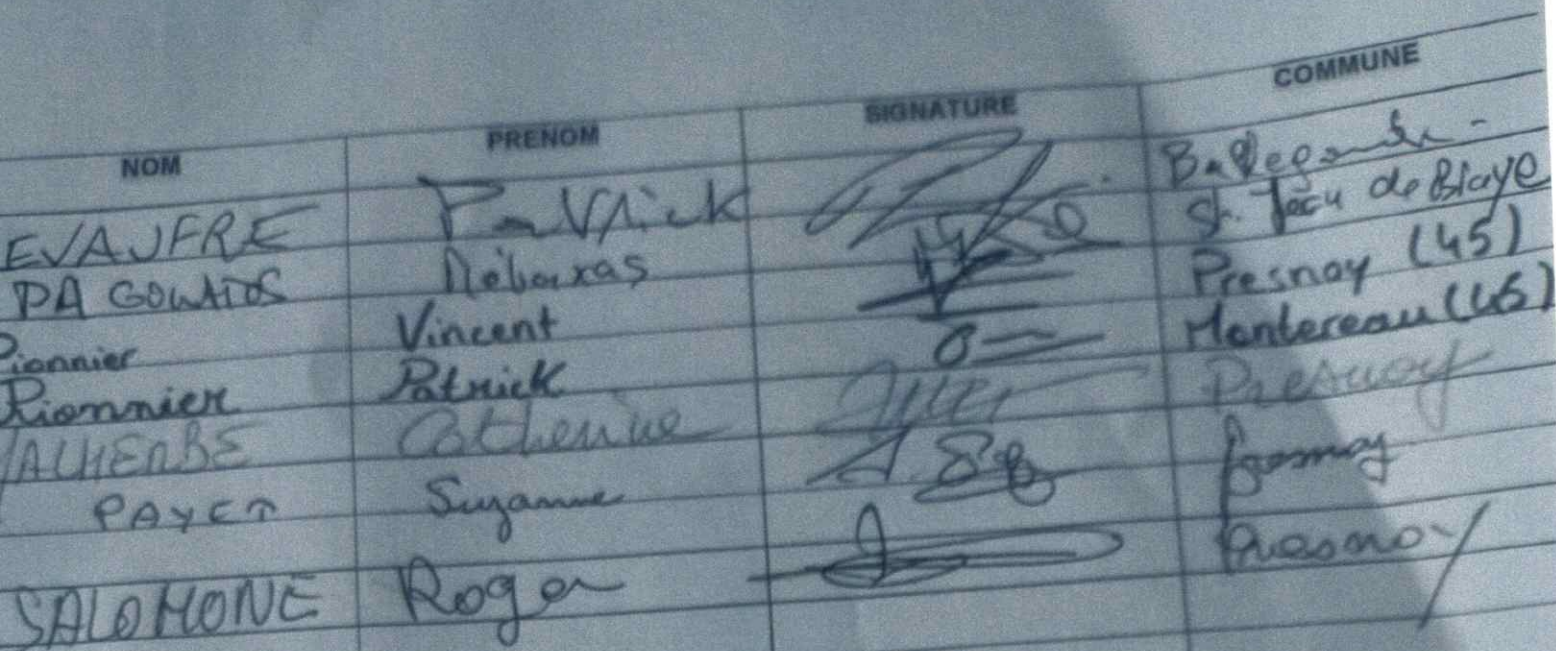 NOM PRENOM SIGNATURE COMMUNE
EVAUFRE Patrick Bellegarde
PA GOWAIDS St. Jean de Blaye
Pionnier Vincent Presnoy (45)
Pionnier Patrick Montereau (45)
MALHERBE Catherine Presnoy
PAYET Suzanne Presnoy
SALOMONE Roger Presnoy